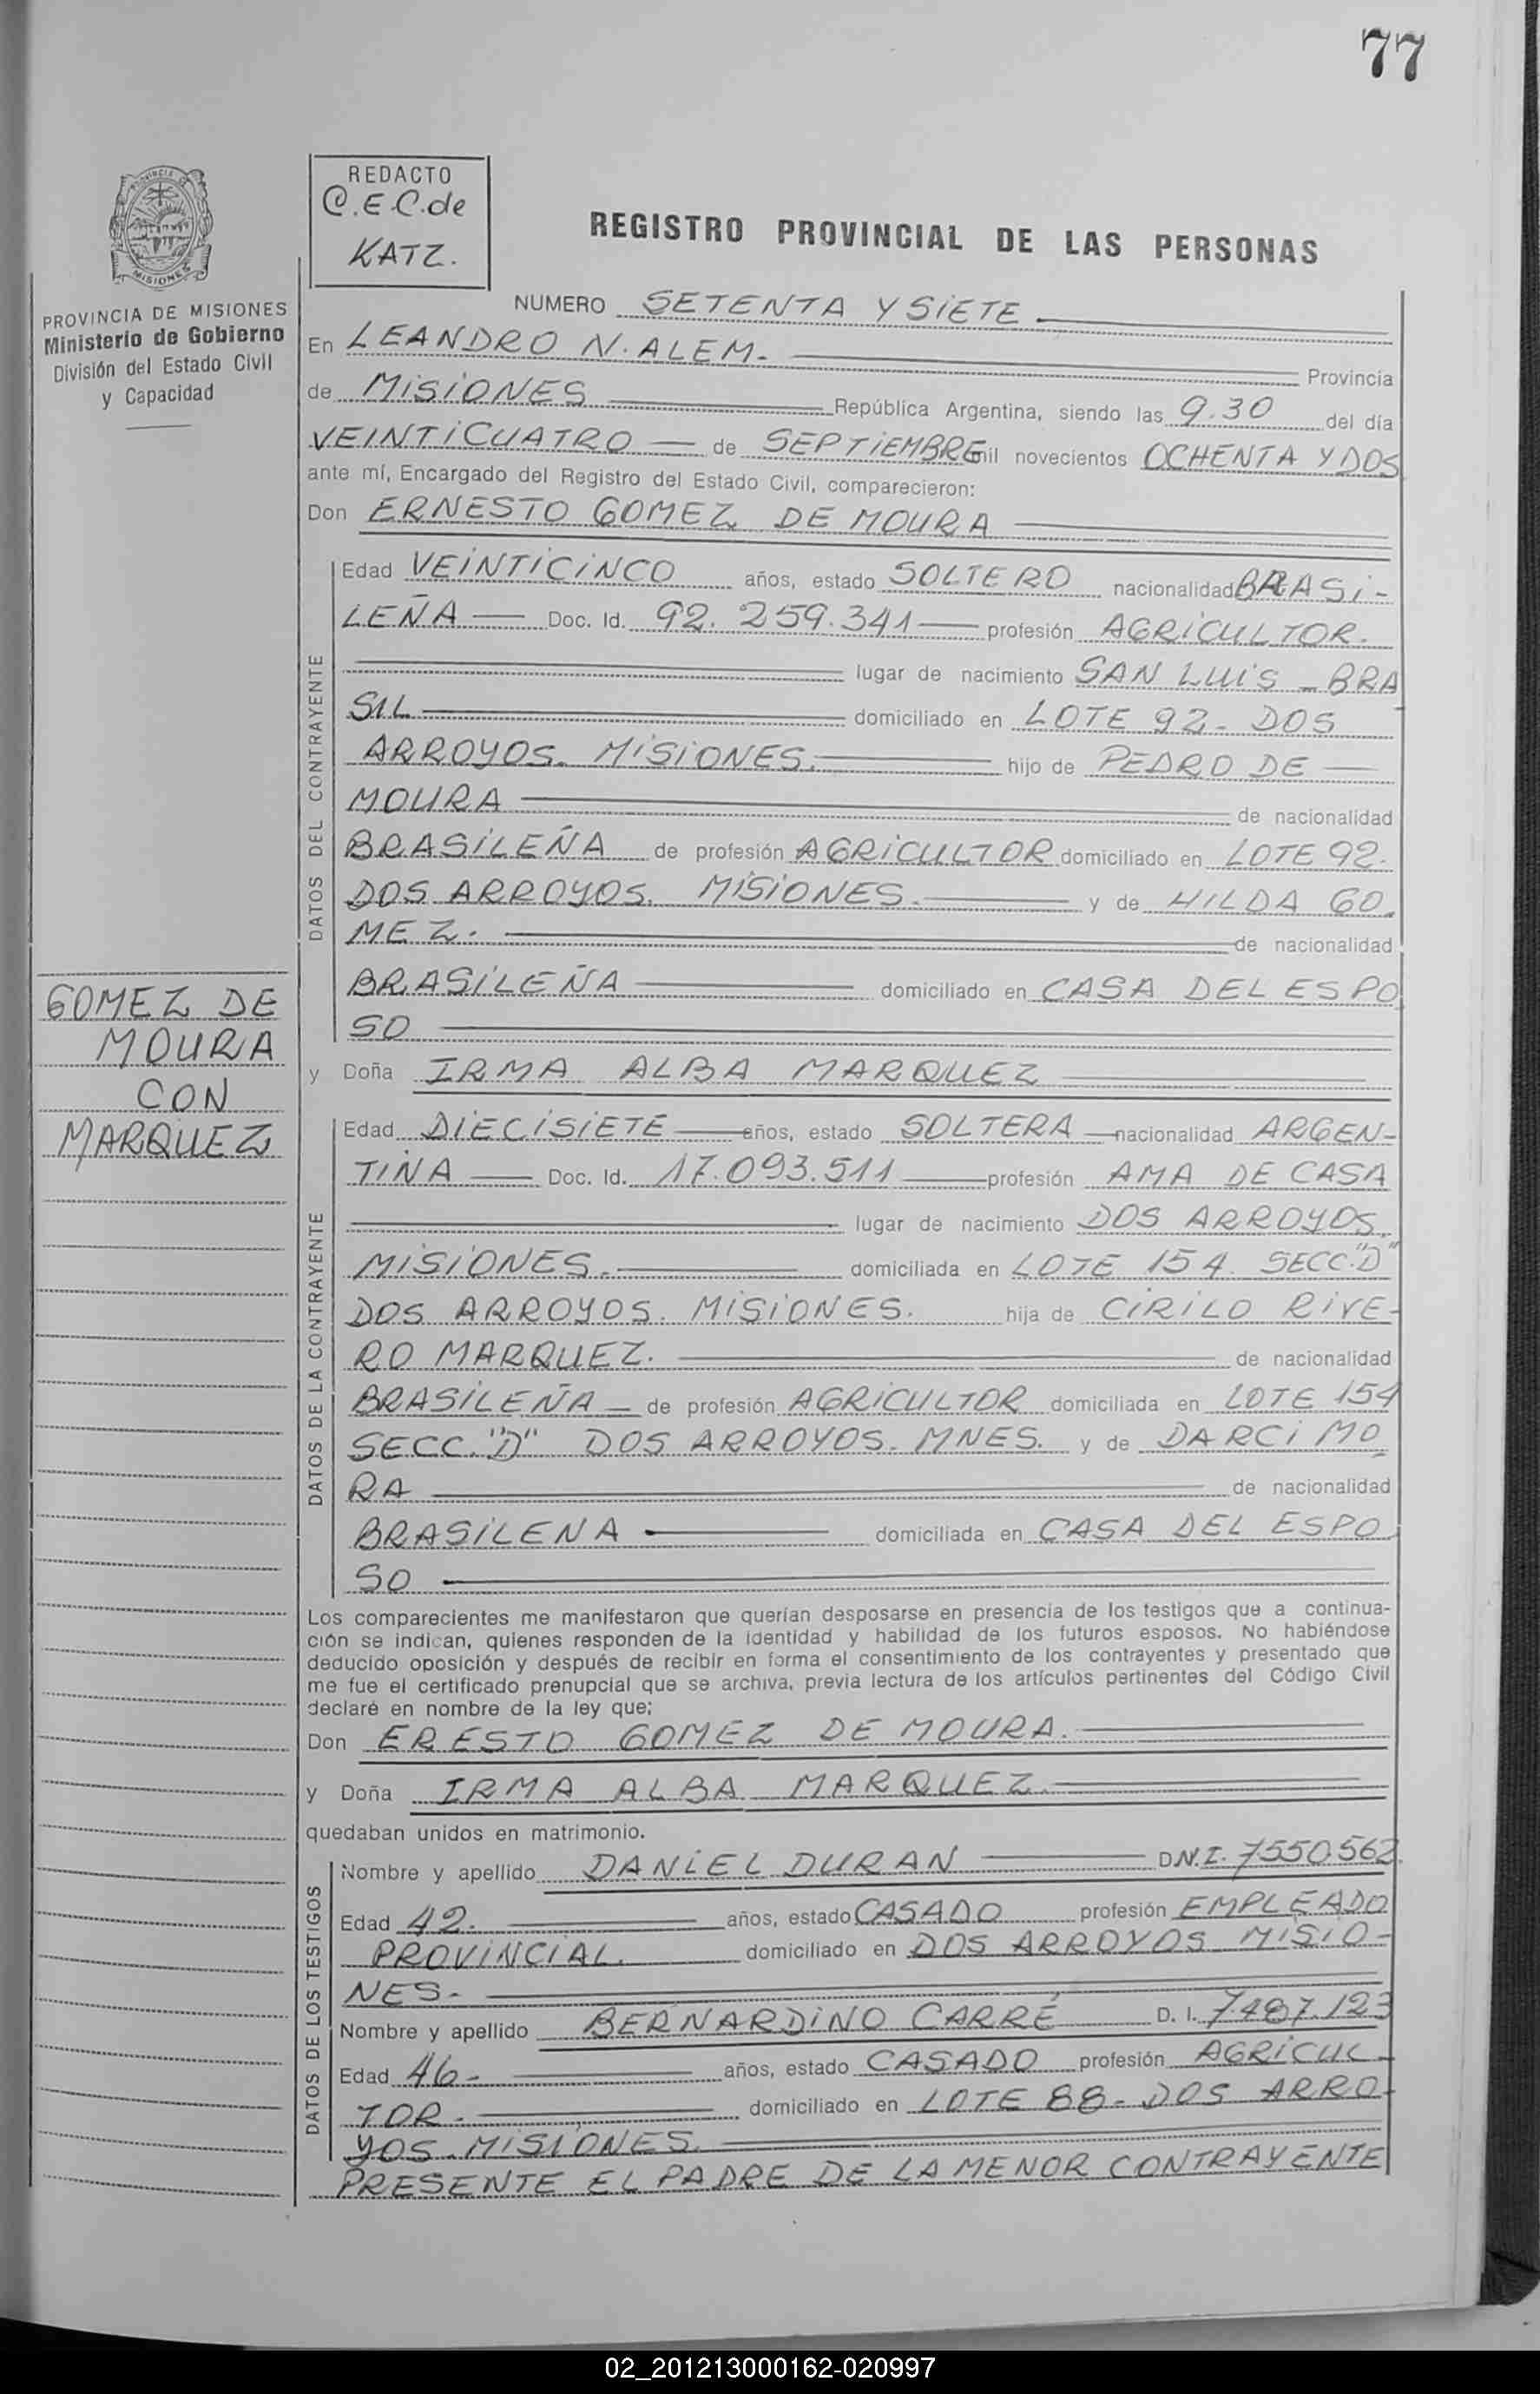 77
REDACTO
C.E.C. de
KATZ.
PROVINCIA DE
MISIONES
REGISTRO PROVINCIAL DE LAS PERSONAS
PROVINCIA DE MISIONES
Ministerio de Gobierno
División del Estado Civil
y Capacidad
NUMERO SETENTA Y SIETE
En LEANDRO N. ALEM. Provincia
de MISIONES República Argentina, siendo las 9.30 del día
VEINTICUATRO de SEPTIEMBRE mil novecientos OCHENTA Y DOS
ante mí, Encargado del Registro del Estado Civil, comparecieron:
Don ERNESTO GOMEZ DE MOURA
DATOS DEL CONTRAYENTE
Edad VEINTICINCO años, estado SOLTERO nacionalidad BRASI-
LEÑA Doc. Id. 92.259.341 profesión AGRICULTOR.
lugar de nacimiento SAN LUIS - BRA
SIL domiciliado en LOTE 92- DOS
ARROYOS. MISIONES. hijo de PEDRO DE
MOURA de nacionalidad
BRASILEÑA de profesión AGRICULTOR domiciliado en LOTE 92.
DOS ARROYOS. MISIONES. y de HILDA GO.
MEZ. de nacionalidad
BRASILEÑA domiciliado en CASA DEL ESPO
SO
GOMEZ DE
MOURA
CON
MARQUEZ
y Doña IRMA ALBA MARQUEZ
DATOS DE LA CONTRAYENTE
Edad DIECISIETE años, estado SOLTERA nacionalidad ARGEN-
TINA Doc. Id. 17.093.511 profesión AMA DE CASA
lugar de nacimiento DOS ARROYOS.
MISIONES. domiciliada en LOTE 154. SECC."D"
DOS ARROYOS. MISIONES. hija de CIRILO RIVE-
RO MARQUEZ. de nacionalidad
BRASILEÑA de profesión AGRICULTOR domiciliada en LOTE 154
SECC."D" DOS ARROYOS. MNES. y de DARCI MO
RA de nacionalidad
BRASILENA domiciliada en CASA DEL ESPO
SO
Los comparecientes me manifestaron que querían desposarse en presencia de los testigos que a continua-
ción se indican, quienes responden de la identidad y habilidad de los futuros esposos. No habiéndose
deducido oposición y después de recibir en forma el consentimiento de los contrayentes y presentado que
me fue el certificado prenupcial que se archiva, previa lectura de los artículos pertinentes del Código Civil
declaré en nombre de la ley que;
Don ERESTO GOMEZ DE MOURA.
y Doña IRMA ALBA MARQUEZ.
quedaban unidos en matrimonio.
DATOS DE LOS TESTIGOS
Nombre y apellido DANIEL DURAN D.N.I. 7550.562.
Edad 42. años, estado CASADO profesión EMPLEADO
PROVINCIAL. domiciliado en DOS ARROYOS MISIO-
NES-
Nombre y apellido BERNARDINO CARRÉ D. I. 7.487.123
Edad 46- años, estado CASADO profesión AGRICUL-
TOR. domiciliado en LOTE 88- DOS ARRO-
YOS. MISIONES.
PRESENTE EL PADRE DE LA MENOR CONTRAYENTE
02_201213000162-020997